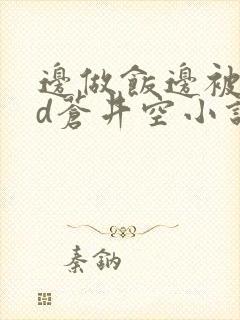 邊做飯邊被
d蒼井空小說
秦鈉